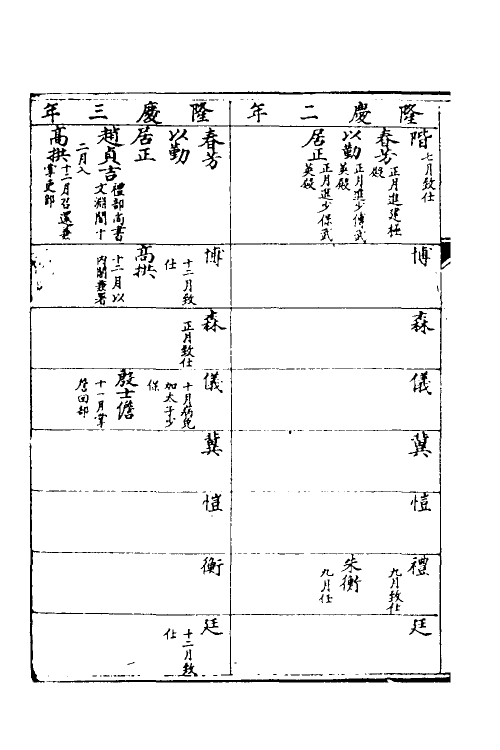 隆慶二年
階 七月致仕
春芳 正月進建極殿
以勤 正月進少傅武英殿
居正 正月進少保武英殿
博
森
儀
冀
愷
禮 九月致仕
朱衡 九月任
廷
隆慶三年
春芳
以勤
居正
趙貞吉 禮部尚書文淵閣十二月入
高拱 十二月召還兼掌吏部
博 十二月致仕
高拱 十二月以內閣兼署
森 正月致仕
儀 十月病免加太子少保
殷士儋 十一月掌詹回部
冀
愷
衡
廷 十二月致仕